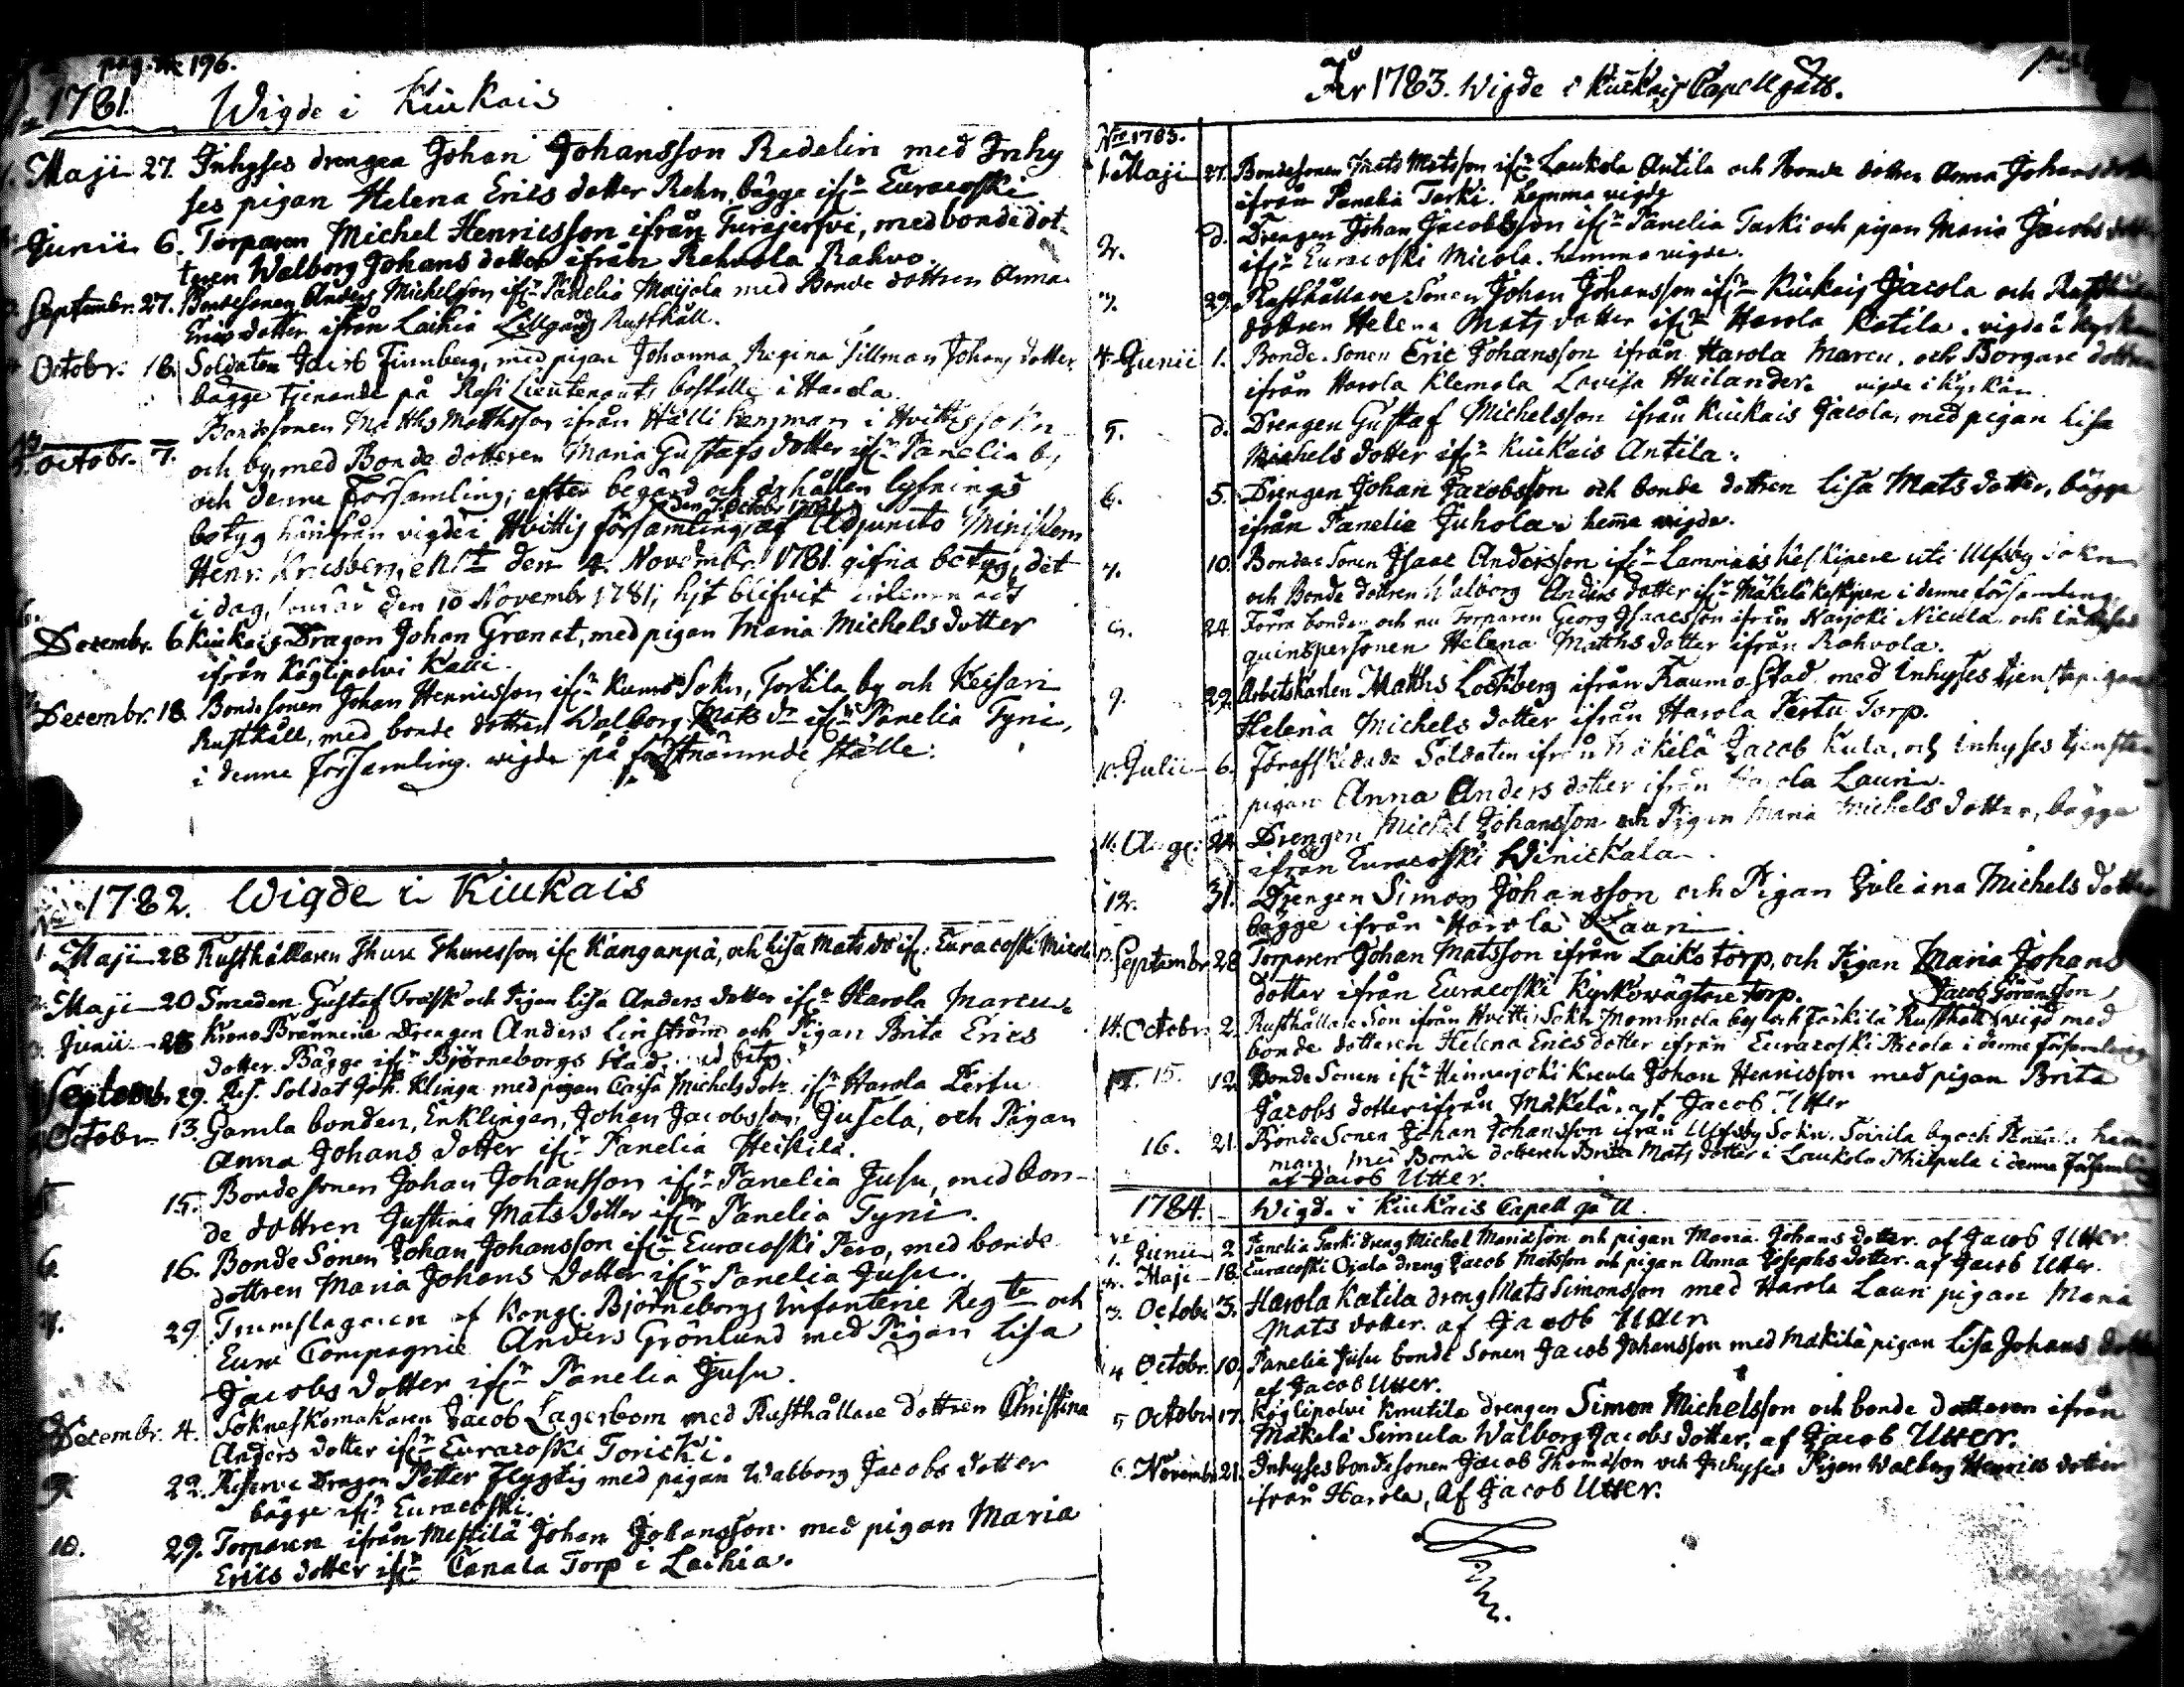 pag. 196.
1781. Wigde i Kiukais
1. Maji 27. Inhyses drengen Johan Johansson Redelin med Inhy
ses pigan Helena Erics dotter Rehn, bägge ifr. Euracoski
Junii 6. Torparen Michel Henricsson ifrån Turajerfvi, med bondedot-
tren Walborg Johans dotter ifrån Rahvola Rahvo.
Septembr. 27. Bondesonen Anders Michelsson ifr. Panelia Maijala med Bonde dottren Anna
Erics dotter ifrån Laihia Lillgårds Rusthåll.
Octobr. 18. Soldaten Jacob Finnberg, med pigan Johanna Regina Tillman Johans dotter,
bägge tjenande på Lieutenants boställe i Harola.
Bondesonen Matths Matthsson ifrån Hälli hemman i Hvittis sokn
Octobr. 7. och by, med Bonde dotteren Maria Gustafs dotter ifr. Panelia by
och denne Församling; efter begärd och erhållen lysnings
den 7 Octobr 1781
betyg härifrån vigde i Hvittis församling, af Adjuncto Ministerii
Henr. den 4. Novembr. 1781 gifna betyg, det
i dag, som är den 10 Novembr 1781, hit blifvit
Decembr. 6. Kiukais Dragon Johan Granat, med pigan Maria Michels dotter
ifrån Köylipolvi Kalli.
Decembr. 18. Bondesonen Johan Henricsson ifr. Kumo Sokn, Torttila by och Keisari
Rusthåll, med bonde dottren Walborg Mats dr ifr. Panelia Tyni,
i denne församling. vigde på förstnämnde ställe.
No 1782. Wigde i Kiukais
1. Maji 28 Rusthållaren Thure Thuresson ifr. Kanganpä, och Lisa Mats dr ifr. Euracoski Micola
2. Maji 20 Smeden Gustaf Träsk och Pigan Lisa Anders dotter ifr. Harola Marcu.
3. Junii 25 Krono Brännerie Drengen Anders Linström och Pigan Brita Erics
dotter. Bägge ifr. Björneborgs Stad
Septemb. 29. Res. Soldat Joh. Klinga med pigan Caisa Michels dotr. ifr. Harola Pertu
Octobr. 13. Gamla bonden, Enklingen, Johan Jacobsson, Jusela, och Pigan
Anna Johans dotter ifr. Panelia Heickilä.
15. Bondesonen Johan Johansson ifr. Panelia Jusu, med bon-
de dottren Justina Mats dotter ifr. Panelia Tyni.
6. 16. Bonde Sonen Johan Johansson ifr. Euracoski Pero, med bonde
dottren Maria Johans dotter ifr. Panelia Jusu.
7. 29. Trumslagaren af Kongl. Björneborgs Infanterie Regte och
Eura Compagnie Anders Grönlund med Pigan Lisa
Jacobs dotter ifr. Panelia Jusu.
Decembr. 4. Sokneskomakaren Jacob Lagerbom med Rusthållare dottren Christina
Anders dotter ifr. Euracoski Toricki.
9. 22. Reserve Dragon Petter Flygtig med pigan Walborg Jacobs dotter
bägge ifr. Euracoski.
10. 29. Torparen ifrån Mestilä Johan Johansson med pigan Maria
Erics dotter ifr. Canala Torp i Laihia.
År 1783. Wigde i Kiukais Capell gäll.
No 1783.
1. Maji 27. Bondesonen Mats Matsson ifr. Laukola Antila och Bonde dottren Anna Johans dotter
ifrån Panelia Tarki. hemma vigde
2. d. Drengen Johan Jacobsson ifr. Panelia Tarki och pigan Maria Jacobs dotter
ifr. Euracoski Micola. hemma vigde.
3. 29. Rusthållare Sonen Johan Johansson ifr. Kiukais Jacola och Rusthållare
dottren Helena Mats dotter ifr. Harola Katila. vigde i kyrkan
4. Junii 1. Bonde Sonen Eric Johansson ifrån Harola Marcu. och Borgare dottren
ifrån Harola Klemola Lovisa Huilander. vigde i kyrkan
5. d. Drengen Gustaf Michelsson ifrån Kiukais Jacola, med pigan Lisa
Michels dotter ifr. Kiukais Antila.
6. 5. Drengen Johan Jacobsson och bonde dottren Lisa Mats dotter, bägge
ifrån Panelia Juhola. hema vigde.
7. 10. Bonde Sonen Isaac Andersson ifr. Lammais uti Ulfsby Sokn
och Bonde dottren Walborg Anders dotter ifr. Mäkelä i denne församling.
24. Förra bonden och nu Torparen Georg Isaacsson ifrån Narjoki Nicula och inhyses
quinspersonen Helena Matths dotter ifrån Rahvola.
9. 29. Arbetskarlen Matths Lockberg ifrån Raumo Stad med Inhyses tjenstepigan
Helena Michels dotter ifrån Harola Pertu Torp.
10. Julii 6. Förafskedade Soldaten ifrån Mäkelä Jacob Kula, och inhyses tjenste
pigan Anna Anders dotter ifrån Harola Lauri.
11. Aug. 24. Drengen Michel Johansson och Pigan Maria Michels dotter, bägge
ifrån Euracoski Winickala.
12. 31. Drengen Simon Johansson och Pigan Juliana Michels dotter
bägge ifrån Harola Lauri.
13. Septembr. 28 Torparen Johan Matsson ifrån Laiko torp, och Pigan Maria Johans
dotter ifrån Euracoski Kyrkowägtare torp.
Jacob Göransson
14. Octobr. 2. Rusthållare Son ifrån Hvittis Sokn Mommola by och Tärkilä Rusthåll vigd med
bonde dotteren Helena Erics dotter ifrån Euracoski Micola i denne församling
15. 12. Bonde Sonen ifr. Hinnerjoki Kreula Johan Henricsson med pigan Brita
Jacobs dotter ifrån Mäkelä. af Jacob Utter
16. 21. Bonde Sonen Johan Johansson ifrån Ulfsby Sokn. Soinila by och hem
man, med Bonde dotteren Brita Mats dotter i Laukola Philpula i denne församling
af Jacob Utter.
1784. Wigde i Kiukais Capell gäll.
1. Junii 2 Panelia Tarki dreng Michel Mariasson och pigan Maria Johans dotter. af Jacob Utter.
2. Maji 18. Euracoski Ojala dreng Jacob Matsson och pigan Anna Josephs dotter. af Jacob Utter.
3. Octobr 3. Harola Katila dreng Mats Simonsson med Harola Lauri pigan Maria
Mats dotter. af Jacob Utter
4. Octobr. 10. Panelia Jusu bonde Sonen Jacob Johansson med Makilä pigan Lisa Johans dotter
af Jacob Utter.
5. Octobr. 17. Köylipolvi Knutila drengen Simon Michelsson och bonde dotteren ifrån
Mäkelä Simula Walborg Jacobs dotter, af Jacob Utter.
6. Novembr 21. Inhyses bondesonen Jacob Thomasson och Inhyses Pigan Walborg Henrics dotter
ifrån Harola, af Jacob Utter.